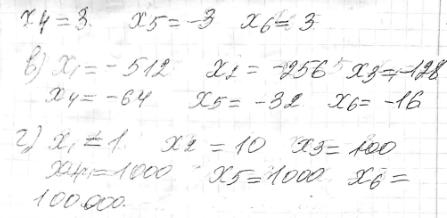 x4=3 x5=-3 x6=3
в) x1=-512 x2=-256 x3=-128
x4=-64 x5=-32 x6=-16
г) x1=1 x2=10 x3=100
x4=1000 x5=1000 x6=
100.000.